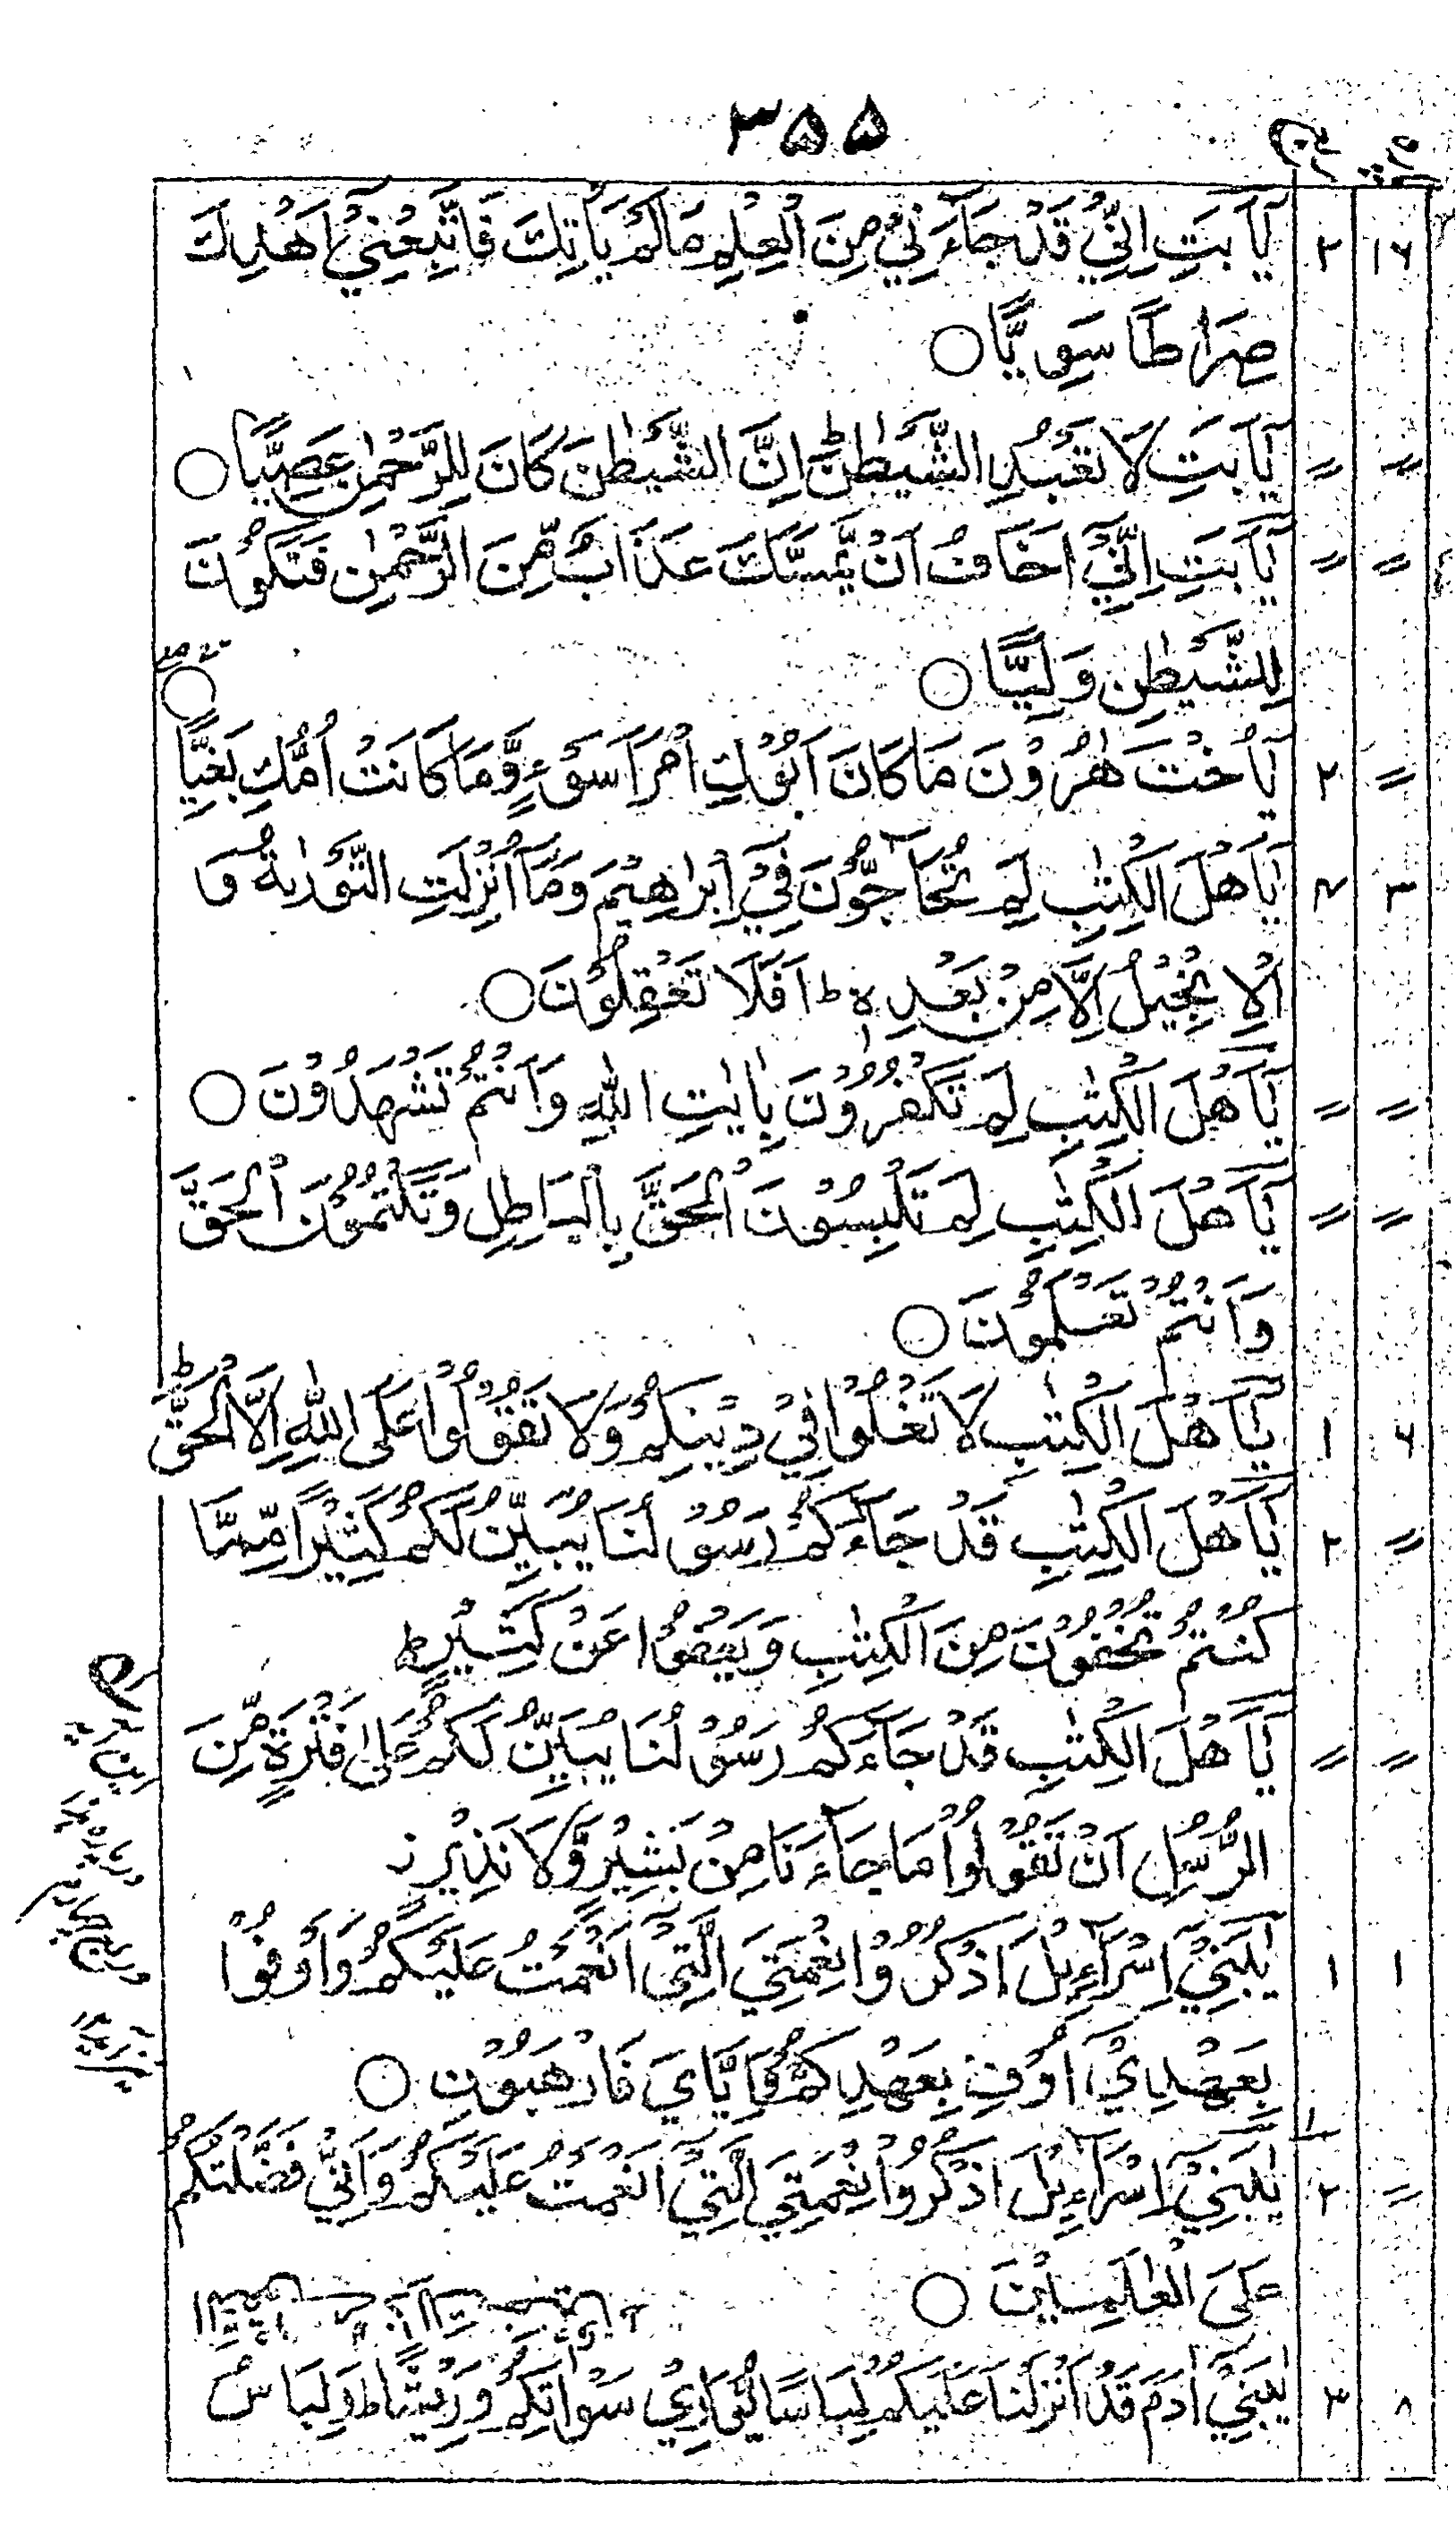 ۳۵۵
۱۶ ۲ يٰٓاَبَتِ اِنِّيْ قَدْ جَآءَنِيْ مِنَ الْعِلْمِ مَا لَمْ يَاْتِكَ فَاتَّبِعْنِيْٓ اَهْدِكَ
صِرَاطًا سَوِيًّا ○
〃 〃 يٰٓاَبَتِ لَا تَعْبُدِ الشَّيْطٰنَ ؕ اِنَّ الشَّيْطٰنَ كَانَ لِلرَّحْمٰنِ عَصِيًّا ○
〃 〃 يٰٓاَبَتِ اِنِّيْٓ اَخَافُ اَنْ يَّمَسَّكَ عَذَابٌ مِّنَ الرَّحْمٰنِ فَتَكُوْنَ
لِلشَّيْطٰنِ وَلِيًّا ○
〃 ۲ يٰٓاُخْتَ هٰرُوْنَ مَا كَانَ اَبُوْكِ امْرَاَ سَوْءٍ وَّمَا كَانَتْ اُمُّكِ بَغِيًّا ○
۳ ۷ يٰٓاَهْلَ الْكِتٰبِ لِمَ تُحَآجُّوْنَ فِيْٓ اِبْرٰهِيْمَ وَمَآ اُنْزِلَتِ التَّوْرٰىةُ وَ
الْاِنْجِيْلُ اِلَّا مِنْۢ بَعْدِهٖ ؕ اَفَلَا تَعْقِلُوْنَ ○
〃 〃 يٰٓاَهْلَ الْكِتٰبِ لِمَ تَكْفُرُوْنَ بِاٰيٰتِ اللّٰهِ وَاَنْتُمْ تَشْهَدُوْنَ ○
〃 〃 يٰٓاَهْلَ الْكِتٰبِ لِمَ تَلْبِسُوْنَ الْحَقَّ بِالْبَاطِلِ وَتَكْتُمُوْنَ الْحَقَّ
وَاَنْتُمْ تَعْلَمُوْنَ ○
۶ ۱ يٰٓاَهْلَ الْكِتٰبِ لَا تَغْلُوْا فِيْ دِيْنِكُمْ وَلَا تَقُوْلُوْا عَلَى اللّٰهِ اِلَّا الْحَقَّ ؕ
〃 ۲ يٰٓاَهْلَ الْكِتٰبِ قَدْ جَآءَكُمْ رَسُوْلُنَا يُبَيِّنُ لَكُمْ كَثِيْرًا مِّمَّا
كُنْتُمْ تُخْفُوْنَ مِنَ الْكِتٰبِ وَيَعْفُوْا عَنْ كَثِيْرٍ ؕ
〃 〃 يٰٓاَهْلَ الْكِتٰبِ قَدْ جَآءَكُمْ رَسُوْلُنَا يُبَيِّنُ لَكُمْ عَلٰى فَتْرَةٍ مِّنَ
الرُّسُلِ اَنْ تَقُوْلُوْا مَا جَآءَنَا مِنْۢ بَشِيْرٍ وَّلَا نَذِيْرٍ ز
۱ ۱ يٰبَنِيْٓ اِسْرَآءِيْلَ اذْكُرُوْا نِعْمَتِيَ الَّتِيْٓ اَنْعَمْتُ عَلَيْكُمْ وَاَوْفُوْا
بِعَهْدِيْٓ اُوْفِ بِعَهْدِكُمْ وَاِيَّايَ فَارْهَبُوْنِ ○
〃 ۲ يٰبَنِيْٓ اِسْرَآءِيْلَ اذْكُرُوْا نِعْمَتِيَ الَّتِيْٓ اَنْعَمْتُ عَلَيْكُمْ وَاَنِّيْ فَضَّلْتُكُمْ
عَلَى الْعٰلَمِيْنَ ○
۸ ۳ يٰبَنِيْٓ اٰدَمَ قَدْ اَنْزَلْنَا عَلَيْكُمْ لِبَاسًا يُّوَارِيْ سَوْاٰتِكُمْ وَرِيْشًا ؕ وَلِبَاسُ